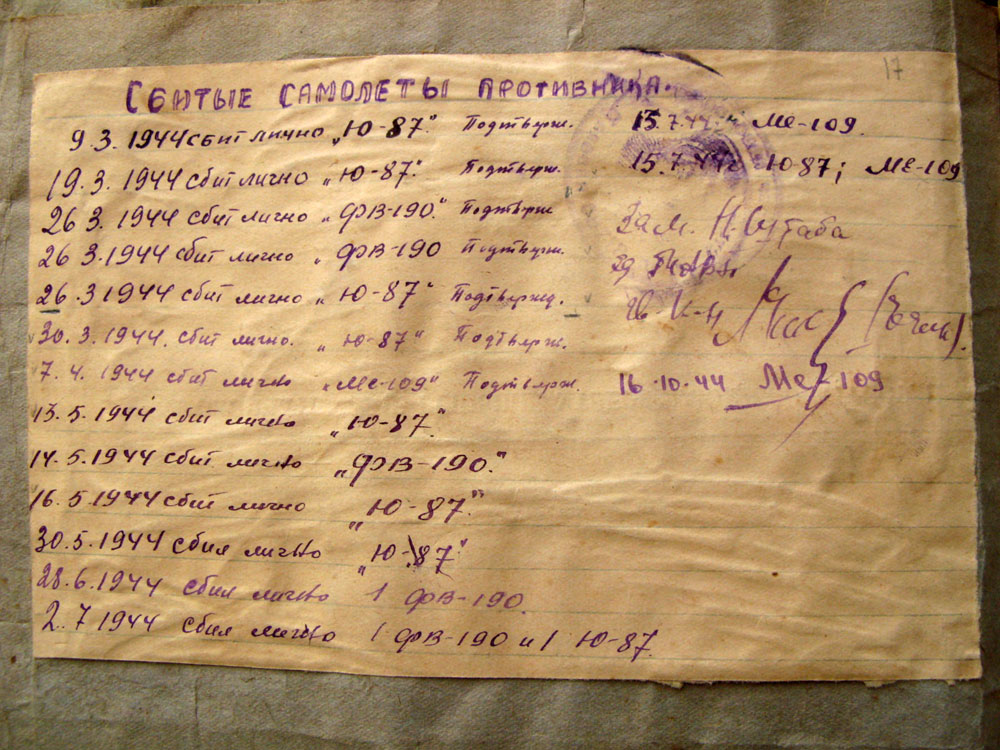 17
Сбитые самолеты противника.
9.3.1944 сбит лично „Ю-87." Подтверж.
19.3.1944 сбит лично „Ю-87." Подтверж.
26 3.1944 сбит лично „ФВ-190." Подтверж
26 3.1944 сбит лично „ФВ-190 Подтверж.
26.3 1944 сбит лично „Ю-87" Подтвержд.
30.3.1944. сбит лично. „Ю-87" Подтверж.
7.4.1944 сбит лично „Ме-109" Подтверж.
13.5.1944 сбит лично „Ю-87."
14.5.1944 сбит лично „ФВ-190."
16.5.1944 сбит лично „Ю-87."
30.5.1944 сбил лично „Ю-87"
28.6.1944 сбил лично 1 ФВ-190.
2.7 1944 сбил лично 1 ФВ-190 и 1 Ю-87.
13.7.44 Ме-109.
15.7.44 Ю87; Ме-109
Зам. Н-
29
16.10.44 Ме-109